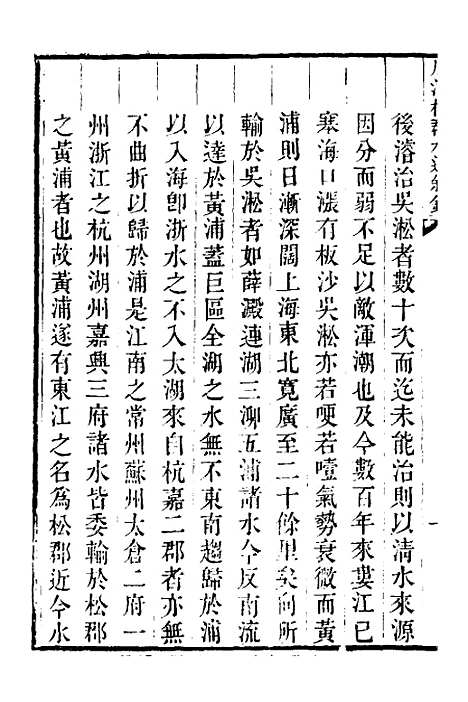 後濬治吳淞者數十次而迄未能治則以清水來源
因分而弱不足以敵渾潮也及今數百年來婁江已
塞海口漲有板沙吳淞亦若哽若噎氣勢衰微而黃
浦則日漸深闊上海東北寬廣至二十餘里矣向所
輸於吳淞者如薛澱連湖三泖五浦諸水今反南流
以達於黃浦蓋巨區全湖之水無不東南趨歸於浦
以入海卽浙水之不入太湖來自杭嘉二郡者亦無
不曲折以歸於浦是江南之常州蘇州太倉二府一
州浙江之杭州湖州嘉興三府諸水皆委輸於松郡
之黃浦者也故黃浦遂有東江之名為松郡近今水